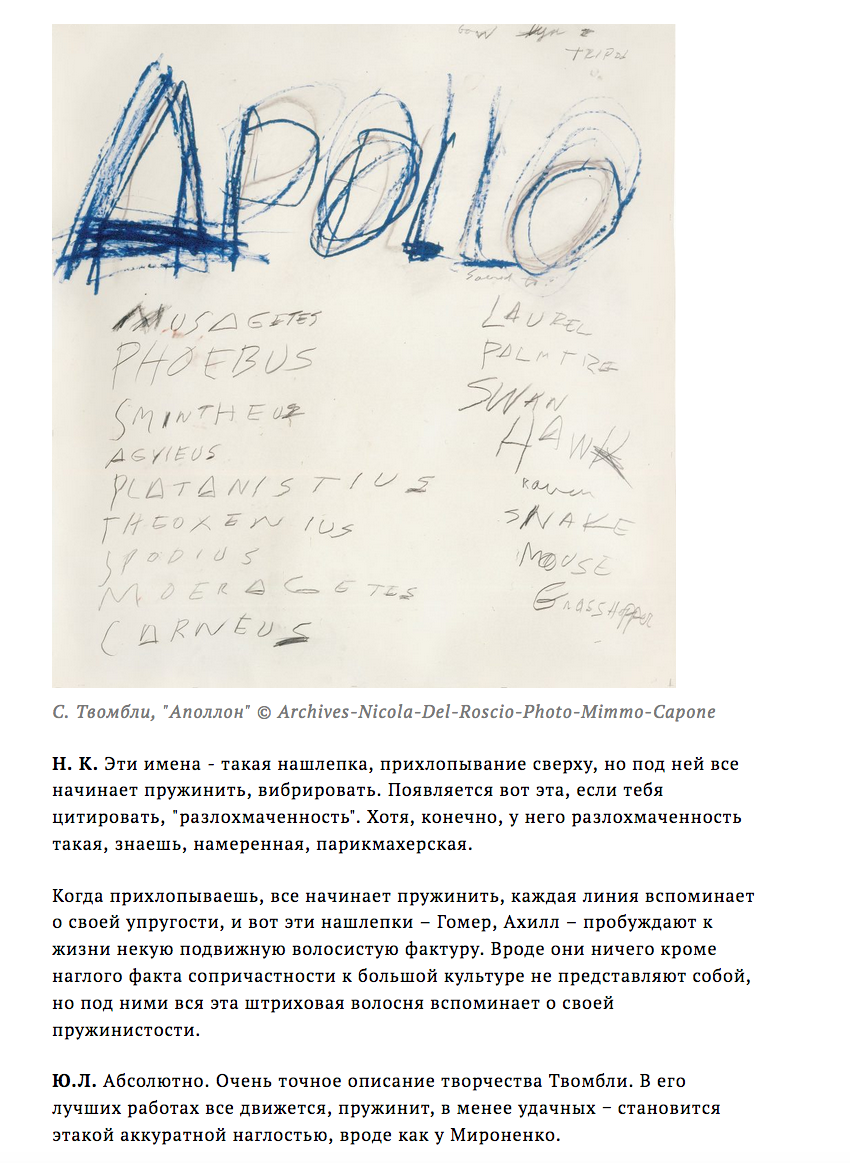 TRIPOD
APOLLO
Sacred to:
MUSAGETES
PHOEBUS
SMINTHEUS
AGVIEUS
PLATANISTIUS
THEOXENIUS
SPODIUS
MOERAGETES
CARNEUS
LAUREL
PALM TREE
SWAN
HAWK
raven
SNAKE
MOUSE
GRASSHOPPER
С. Твомбли, "Аполлон" © Archives-Nicola-Del-Roscio-Photo-Mimmo-Capone
Н. К. Эти имена - такая нашлепка, прихлопывание сверху, но под ней все
начинает пружинить, вибрировать. Появляется вот эта, если тебя
цитировать, "разлохмаченность". Хотя, конечно, у него разлохмаченность
такая, знаешь, намеренная, парикмахерская.
Когда прихлопываешь, все начинает пружинить, каждая линия вспоминает
о своей упругости, и вот эти нашлепки – Гомер, Ахилл – пробуждают к
жизни некую подвижную волосистую фактуру. Вроде они ничего кроме
наглого факта сопричастности к большой культуре не представляют собой,
но под ними вся эта штриховая волосня вспоминает о своей
пружинистости.
Ю.Л. Абсолютно. Очень точное описание творчества Твомбли. В его
лучших работах все движется, пружинит, в менее удачных – становится
этакой аккуратной наглостью, вроде как у Мироненко.